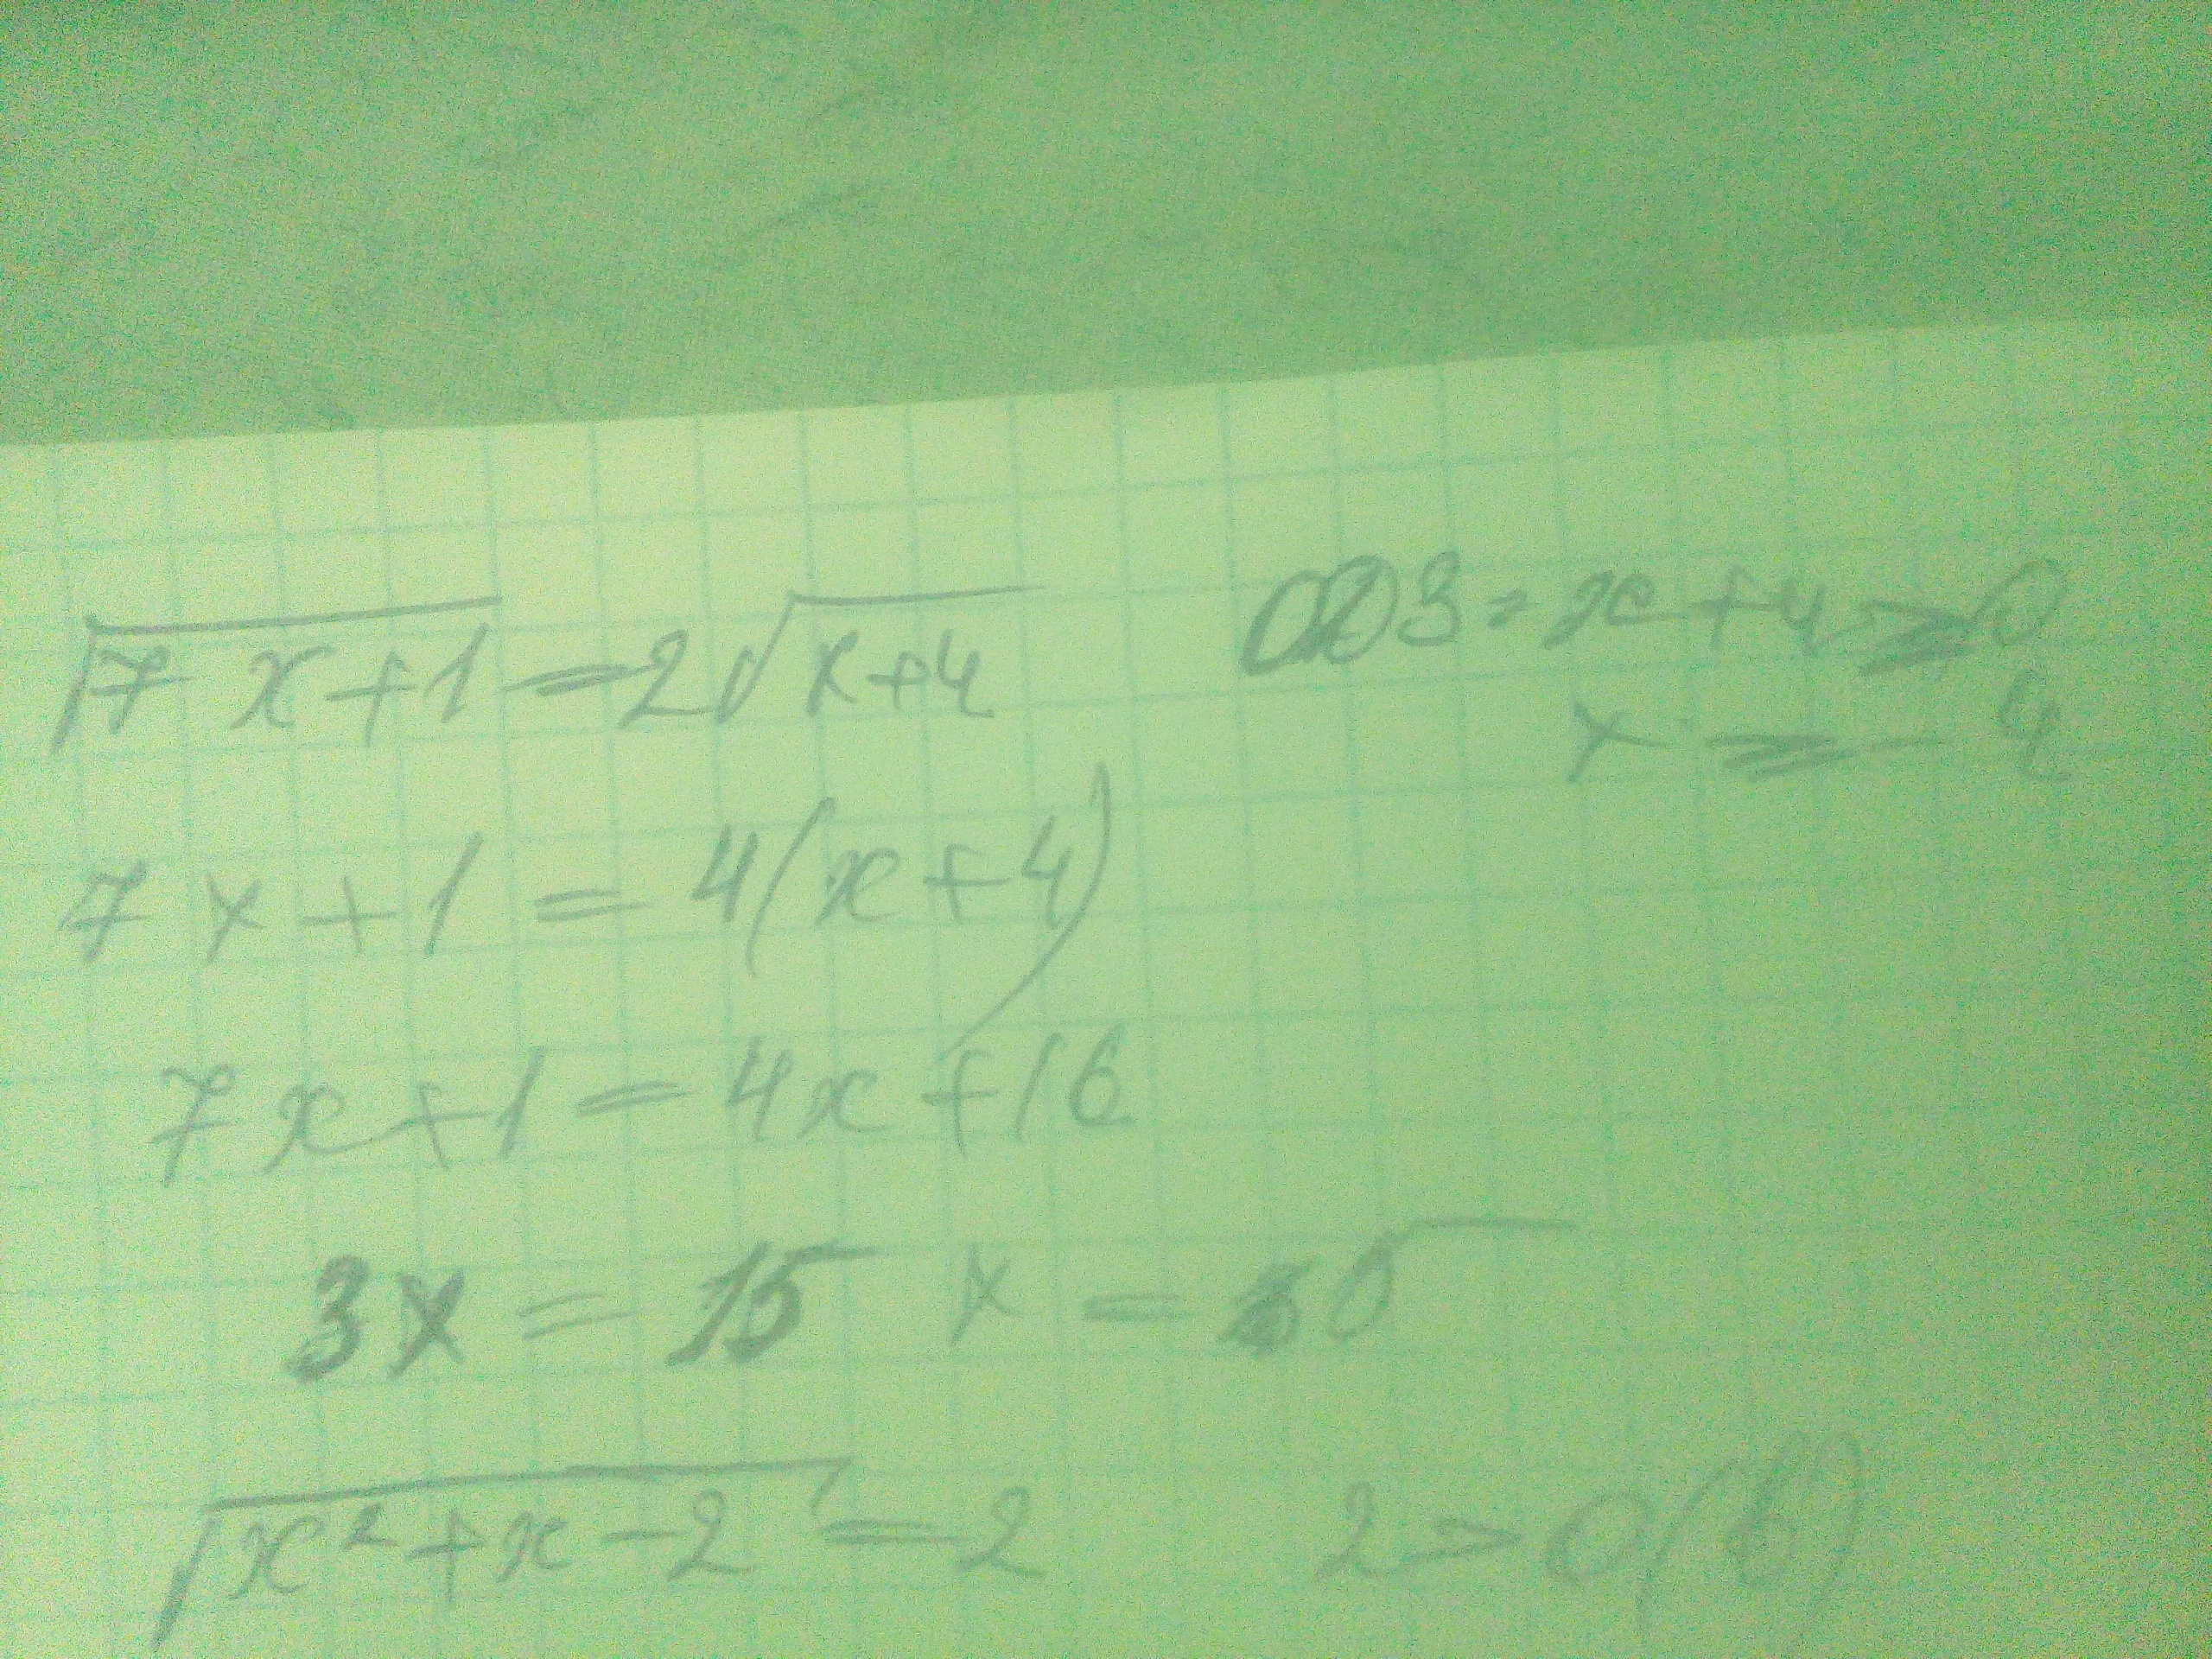 √7x+1 = 2√x+4 ОДЗ: x+4 ≥ 0
x ≥ -4
7x+1 = 4(x+4)
7x+1 = 4x+16
3x = 15 x = 5
√x²+x-2 = 2 2 > 0 (в)